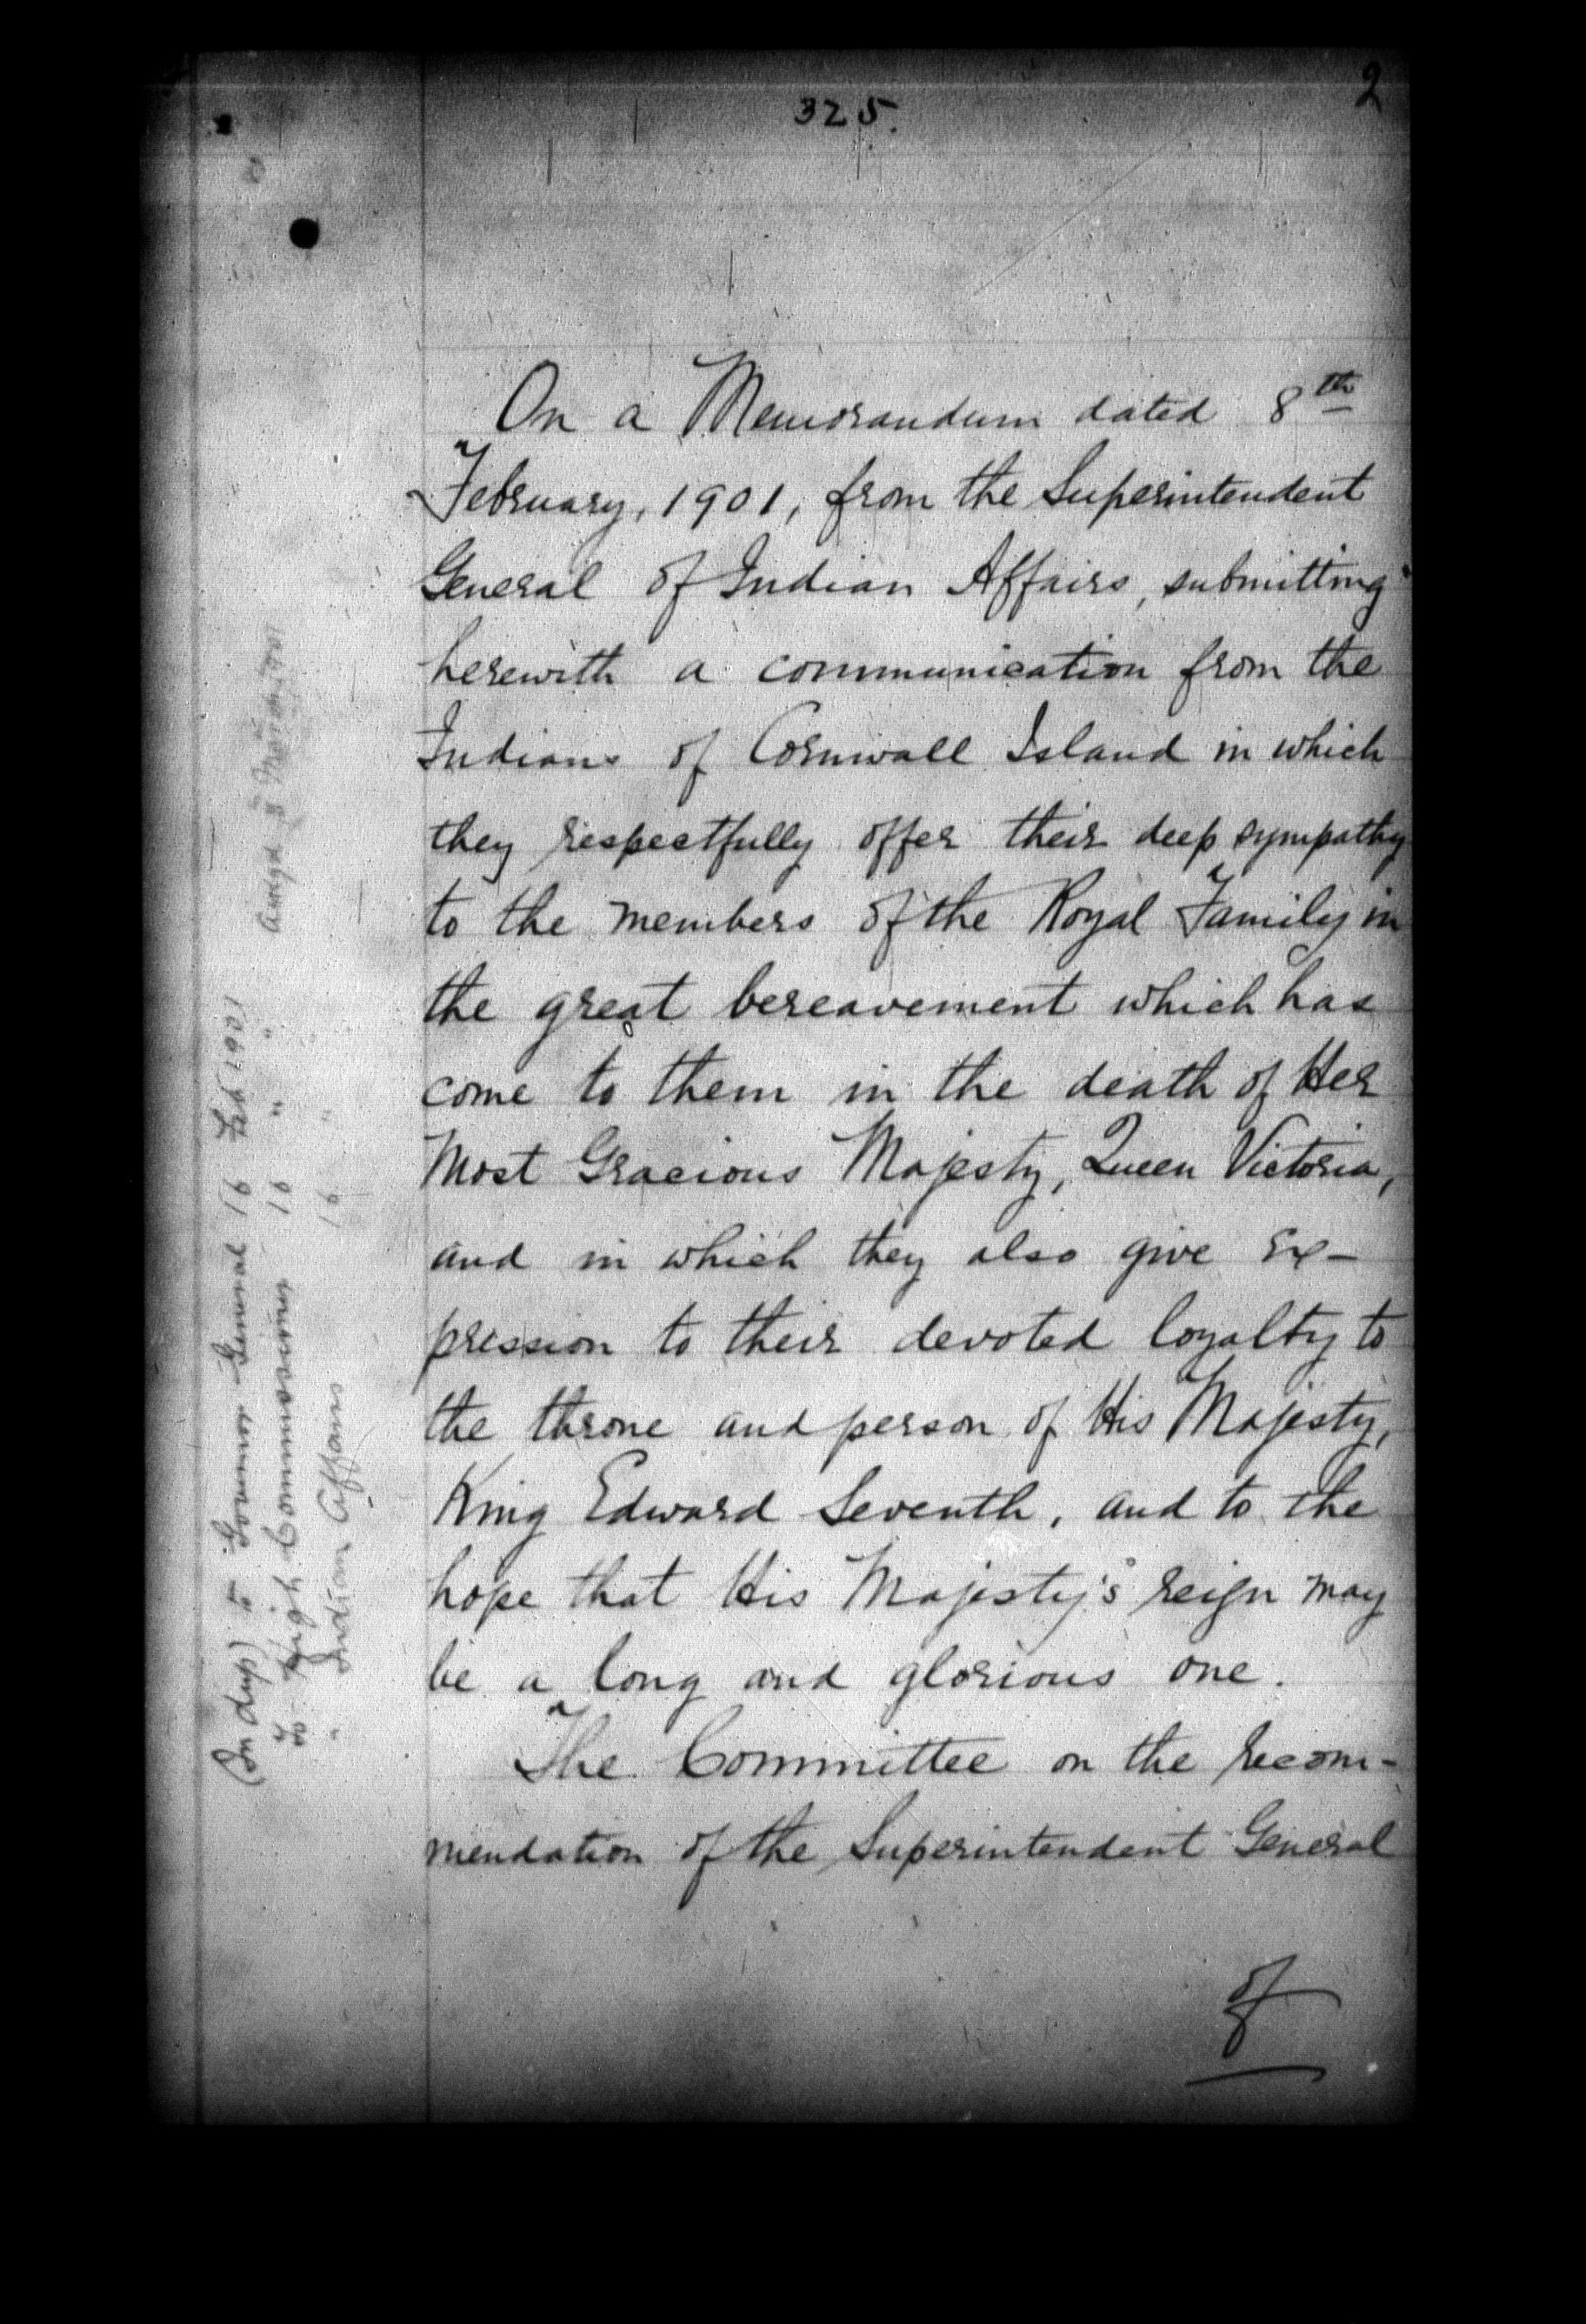 2
325.
On a Memorandum dated 8th
February, 1901, from the Superintendent
General of Indian Affairs, submitting
herewith a communication from the
Indians of Cornwall Island in which
they respectfully offer their deep sympathy
to the members of the Royal Family in
the great bereavement which has
come to them in the death of Her
Most Gracious Majesty, Queen Victoria,
and in which they also give ex-
pression to their devoted loyalty to
the throne and person of His Majesty,
King Edward Seventh, and to the
hope that His Majesty's reign may
be a long and glorious one.
The Committee on the recom-
mendation of the Superintendent General
of
(In dup) to Governor General 16 Feb 1901
To High Commissioner 16 " "
" Indian Affairs 16 "
March, 1901